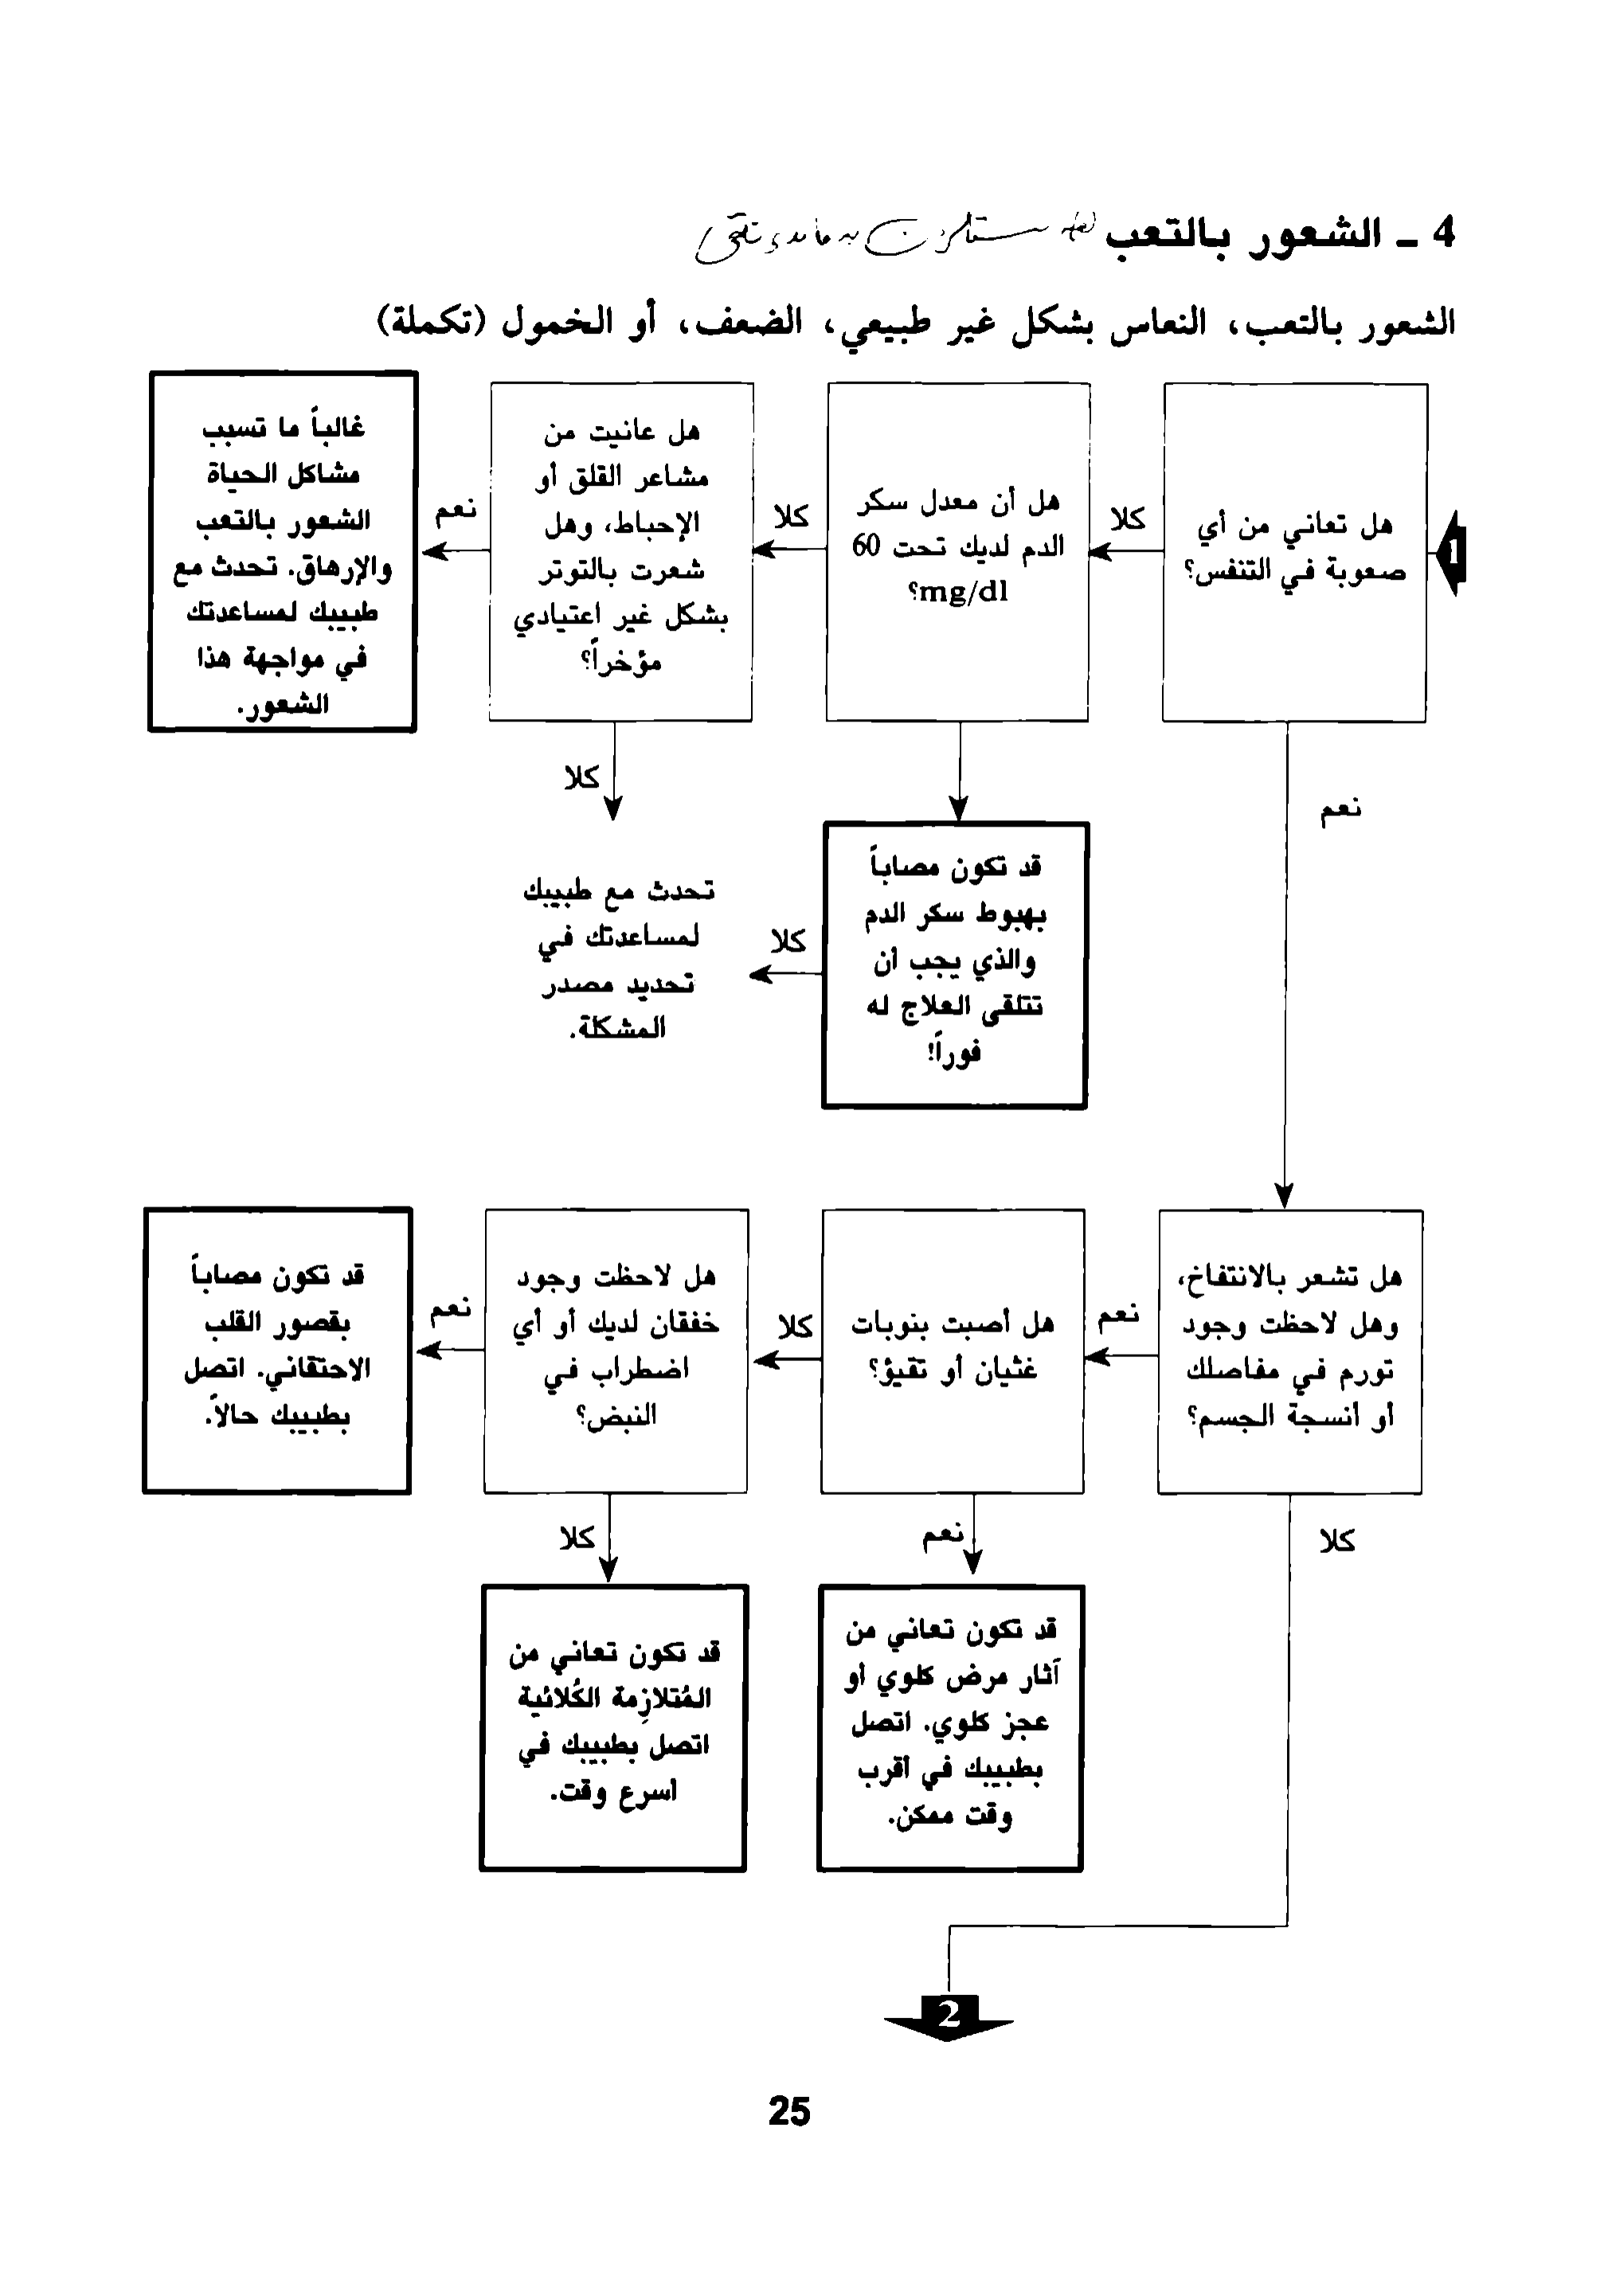 4 ـ الشعور بالتعب
الشعور بالتعب، النعاس بشكل غير طبيعي، الضعف، أو الخمول (تكملة)
1
هل تعاني من أي
صعوبة في التنفس؟
كلا
هل أن معدل سكر
الدم لديك تحت 60
mg/dl؟
كلا
هل عانيت من
مشاعر القلق أو
الإحباط، وهل
شعرت بالتوتر
بشكل غير اعتيادي
مؤخراً؟
نعم
غالباً ما تسبب
مشاكل الحياة
الشعور بالتعب
والإرهاق. تحدث مع
طبيبك لمساعدتك
في مواجهة هذا
الشعور.
نعم
كلا
قد تكون مصاباً
بهبوط سكر الدم
والذي يجب أن
تتلقى العلاج له
فوراً!
كلا
تحدث مع طبيبك
لمساعدتك في
تحديد مصدر
المشكلة.
هل تشعر بالانتفاخ،
وهل لاحظت وجود
تورم في مفاصلك
أو أنسجة الجسم؟
نعم
هل أصبت بنوبات
غثيان أو تقيؤ؟
كلا
هل لاحظت وجود
خفقان لديك أو أي
اضطراب في
النبض؟
نعم
قد تكون مصاباً
بقصور القلب
الاحتقاني. اتصل
بطبيبك حالاً.
كلا
نعم
كلا
قد تكون تعاني من
آثار مرض كلوي أو
عجز كلوي. اتصل
بطبيبك في أقرب
وقت ممكن.
قد تكون تعاني من
المُتلازِمة الكُلائية
اتصل بطبيبك في
أسرع وقت.
2
25